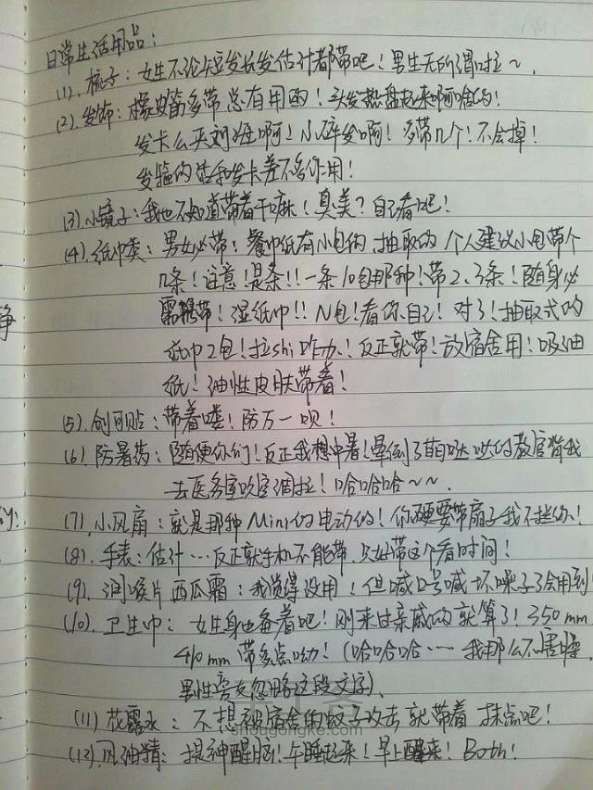 日常生活用品：
(1). 梳子：女生不论短发长发估计都带吧！男生无所谓啦～.
(2). 发饰：橡皮筋多带总有用的！头发热盘起来啊啥的！
发卡么夹刘海啊！小碎发啊！多带几个！不会掉！
发箍的话和发卡差不多作用！
(3). 小镜子：我也不知道带着干嘛！臭美？自己看吧！
(4). 纸巾类：男女必带！餐巾纸有小包的、抽取的 个人建议小包带个
几条！注意！是条！！一条10包那种！带2、3条！随身必
需携带！湿纸巾！！N包！看你自己！对了！抽取式的
纸巾2包！拉shi咋办！反正就带！放宿舍用！吸油
纸！油性皮肤带着！
(5). 创可贴：带着喽！防万一呗！
(6). 防暑药：随便你们！反正我想中暑！晕倒了萌哒哒的教官背我
去医务室吹空调拉！哈哈哈～～.
(7). 小风扇：就是那种Mini的电动的！你硬要带扇子我不拦你！
(8). 手表：估计…反正就手机不能带.只好带这个看时间！
(9). 润喉片 西瓜霜：我觉得没用！但喊口号喊坏嗓子了会用到
(10). 卫生巾：女生身边备着吧！刚来过亲戚的就算了！350mm
410mm 带多点呦！(哈哈哈…我那么不害臊.
男性旁友忽略这段文字).
(11) 花露水：不想被宿舍的蚊子攻击就带着 抹点吧！
(12). 风油精：提神醒脑！午睡起来！早上醒来！Both！
shougongke.com